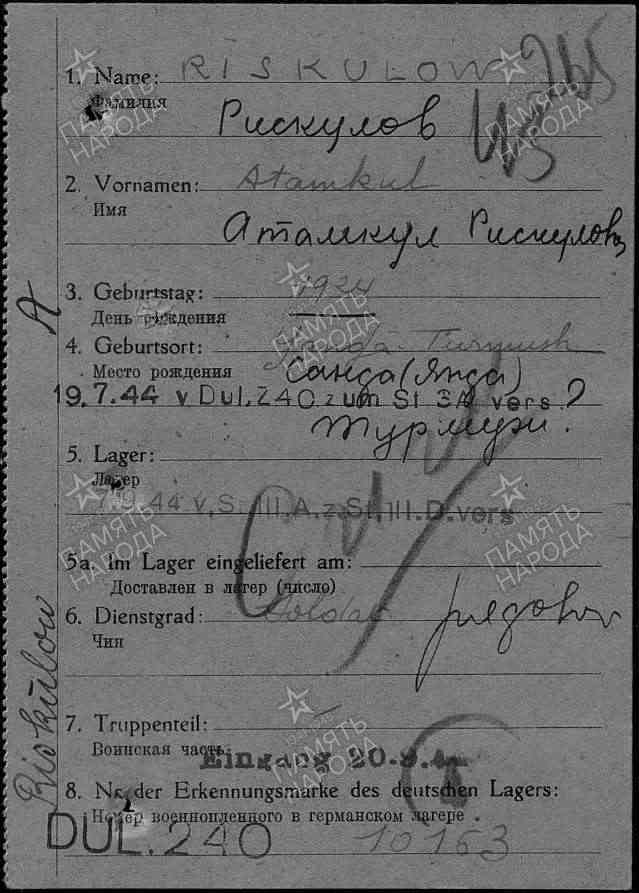 1. Name: RISKULOW
Фамилия
Рискулов
2. Vornamen: Atamkul
Имя
Атамкул Рискулов
3. Geburtstag: 1924
День рождения
4. Geburtsort: Turmush
Место рождения Санда (Янда)
19.7.44 v Dul. 240 zum St 3A vers ?
Турмуш.
5. Lager:
Лагер
7.9.44 v. S. III. A. z. St. III. D. vers
5a. Im Lager eingeliefert am:
Доставлен в лагер (число)
6. Dienstgrad: Soldat рядовой
Чин
7. Truppenteil:
Воинская часть
Eingang 20-9.4
8. Nr. der Erkennungsmarke des deutschen Lagers:
Номер военнопленного в германском лагере
DUL. 240 10163
A
Riskulow
ПАМЯТЬ
НАРОДА
ПАМЯТЬ
НАРОДА
ПАМЯТЬ
НАРОДА
ПАМЯТЬ
НАРОДА
ПАМЯТЬ
НАРОДА
ПАМЯТЬ
НАРОДА